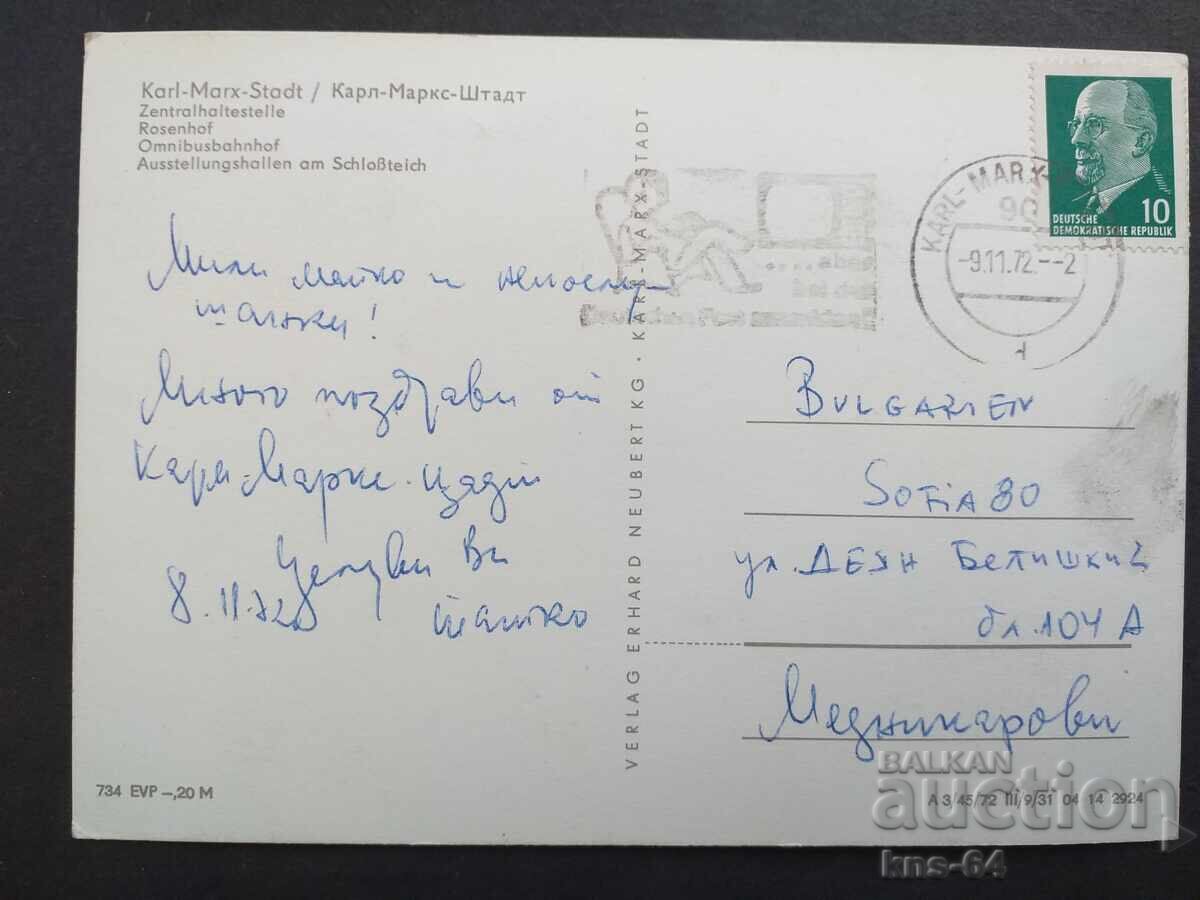 Karl-Marx-Stadt / Карл-Маркс-Штадт
Zentralhaltestelle
Rosenhof
Omnibusbahnhof
Ausstellungshallen am Schloßteich
Мили майко и
Много поздрави от
Карл-Маркс-щадт
Целувки Ви
8.11.72
татко
734 EVP –,20 M
VERLAG ERHARD NEUBERT KG · KARL-MARX-STADT · KARL-MARX-STADT
DEUTSCHE
DEMOKRATISCHE REPUBLIK
10
KARL-MARX-
90
-9.11.72.--2
BULGARIEN
SOFIA 80
ул. ДЕЯН БЕЛИШКИ 2
бл. 104 А
Медникарови
A 3/45/72 III/9/31 04 14 2924
BALKAN
auction
kns-64